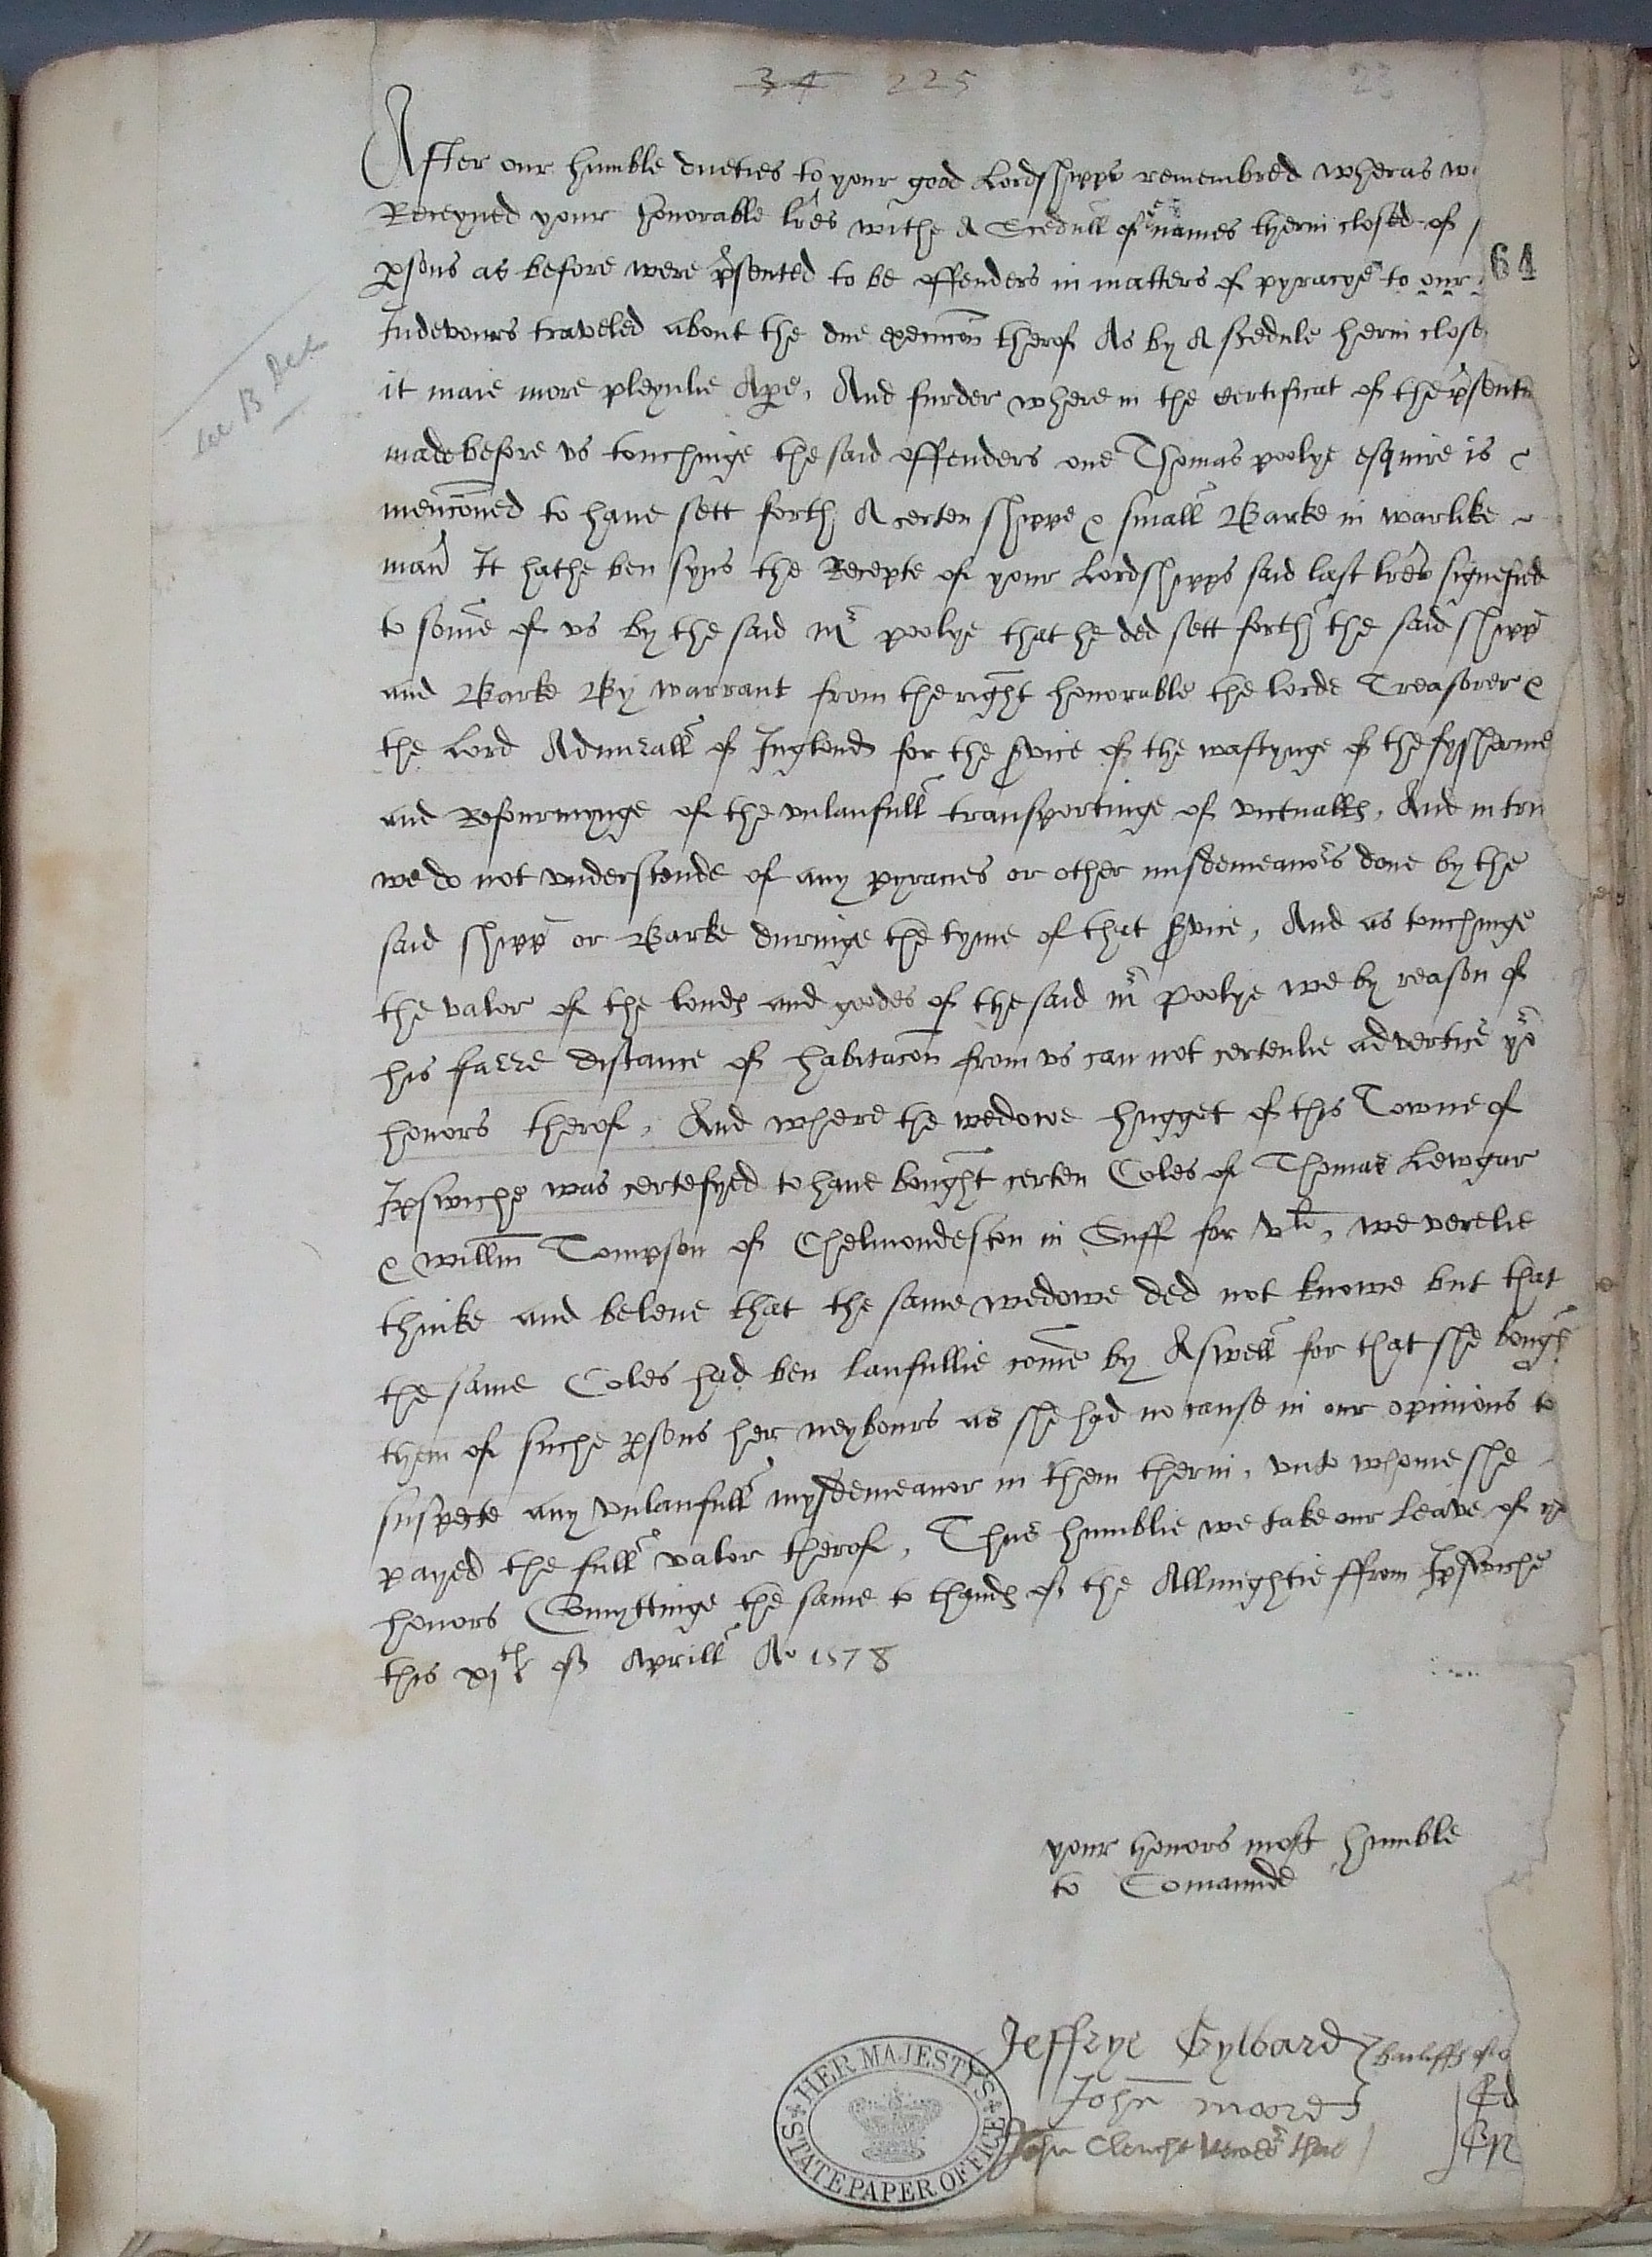 34 225 23
After our humble dueties to your good Lordshipps remembred wheras w
Receyued your honorable lres withe A Scedull of ye names therin closed of
psons as before were psented to be offenders in matters of pyracye to our
64
Indevours traveled about the due execucon therof As by A scedule herin close
it maie more pleynlie Apere, And furder where in the certificat of the psentm
see 13 Dec
made before vs touchinge the said offenders one Thomas poolye esquire is
mencioned to haue sett forth A certen shippe & small Barke in warlike
man It hathe ben syns the Recepte of your Lordshipps said last lres signefied
to some of vs by the said mr poolye that he ded sett forth the said shipp
and Barke By warrant from the right honorable the lorde Treasorer &
the Lord Admirall of Inglond for the svice of the waftynge of the fyssherme
and Refourmynge of the vnlaufull transportinge of victualls, And in tru
we do not vnderstonde of any pyracies or other misdemeanors done by the
said shipp or Barke duringe the tyme of that svice, And as touchinge
the valor of the londs and goodes of the said mr poolye we by reason of
his farre distance of habitacon from vs can not certenlie advertice yor
honors therof, And where the wedowe hugget of this Towne of
Ipswiche was certefyed to haue bought certen Coles of Thomas Lewgar
& willm Tompson of Chelmondeston in Suff for vli, we verelie
thinke and beleue that the same wedowe ded not knowe but that
the same Coles had ben laufullie come by Aswell for that she bough
them of suche psons her neybours as she had no cause in our opinions to
suspecte any vnlaufull mysdemeanor in them therin, vnto whome she
payed the full valor therof, Thus humblie we take our leave of yo
honors Comyttinge the same to thands of the Allmightie ffrom Ipswiche
this xjth of Aprill Ao 1578
your honors most humble
to Comaunde
Jeffrye Gylbard bailiffs of
John moore
John Clenche Recordr there
HER MAJESTY'S STATE PAPER OFFICE